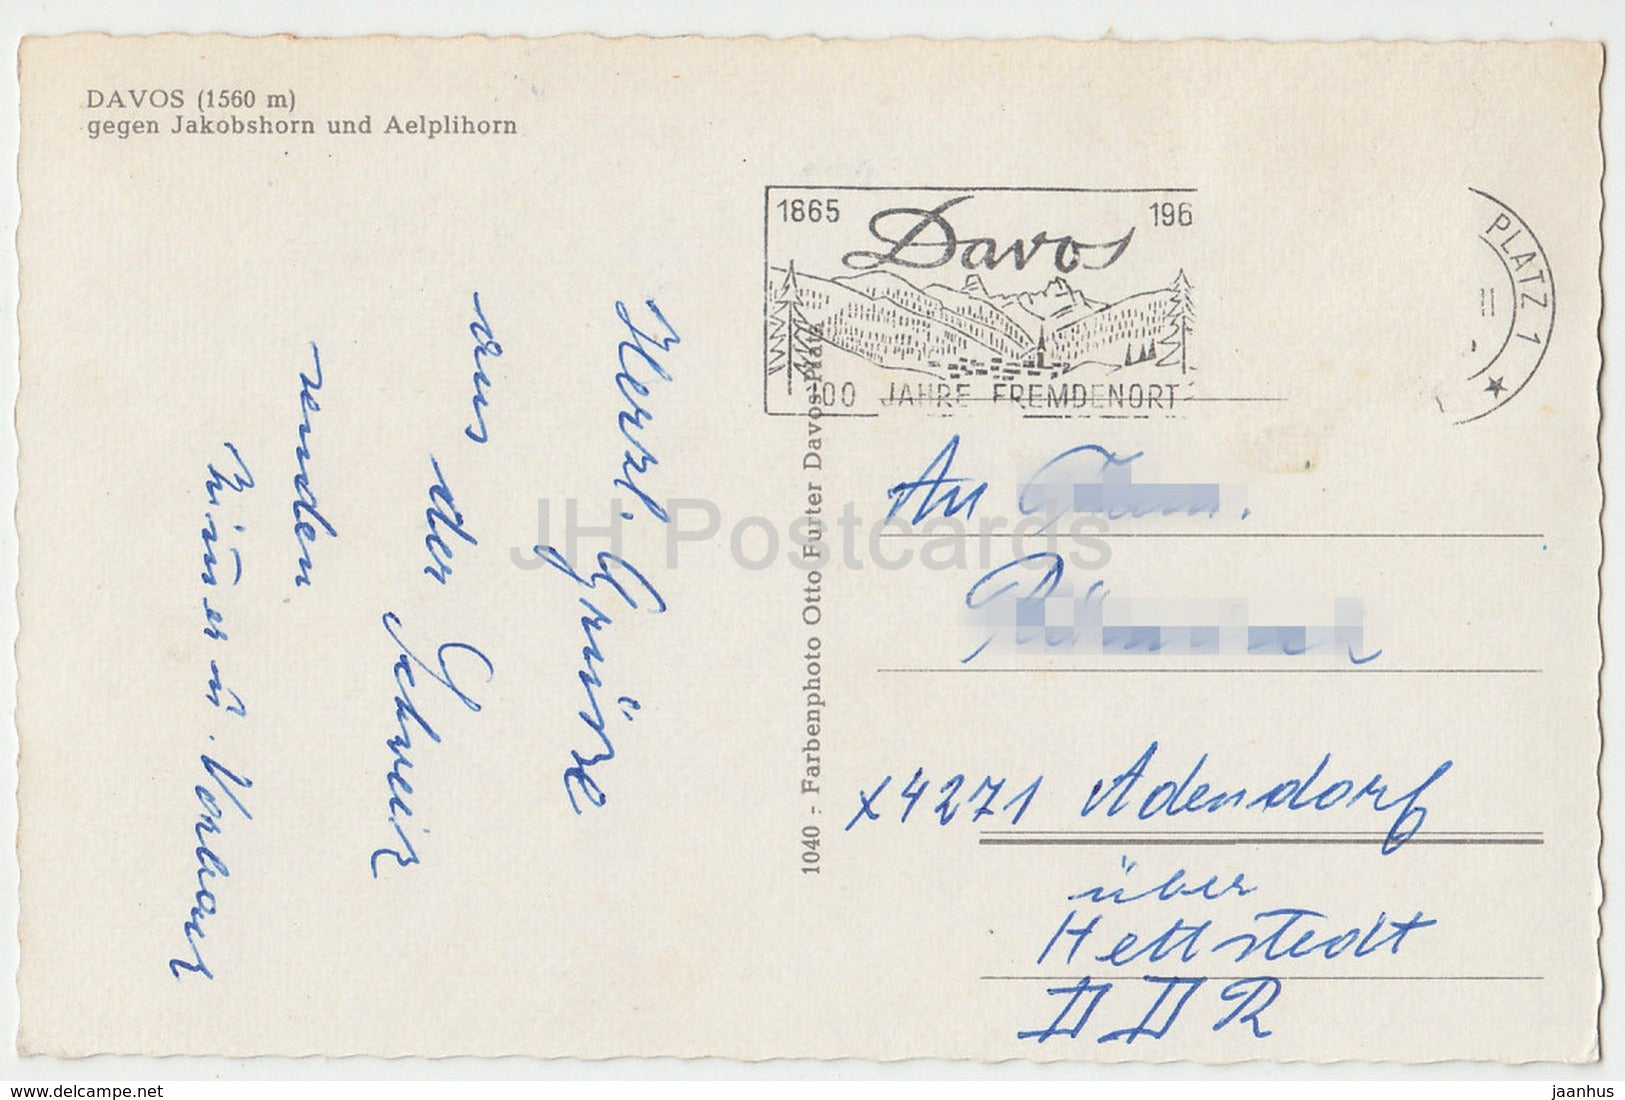 DAVOS (1560 m)
gegen Jakobshorn und Aelplihorn
1865 Davos 196
00 JAHRE FREMDENORT
PLATZ 1
II
Herzl. Grüße
aus der Schweiz
senden
u.
1040 - Farbenphoto Otto Furter Davos-Platz
An
x4271 Adendorf
über
Hettstedt
DDR
JH Postcards
www.delcampe.net
jaanhus